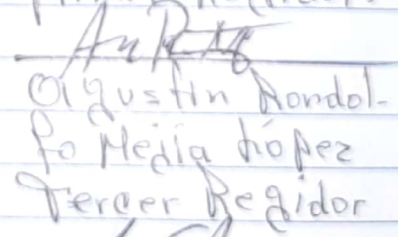 Agustin Rondol-
fo Mejía López
Tercer Regidor